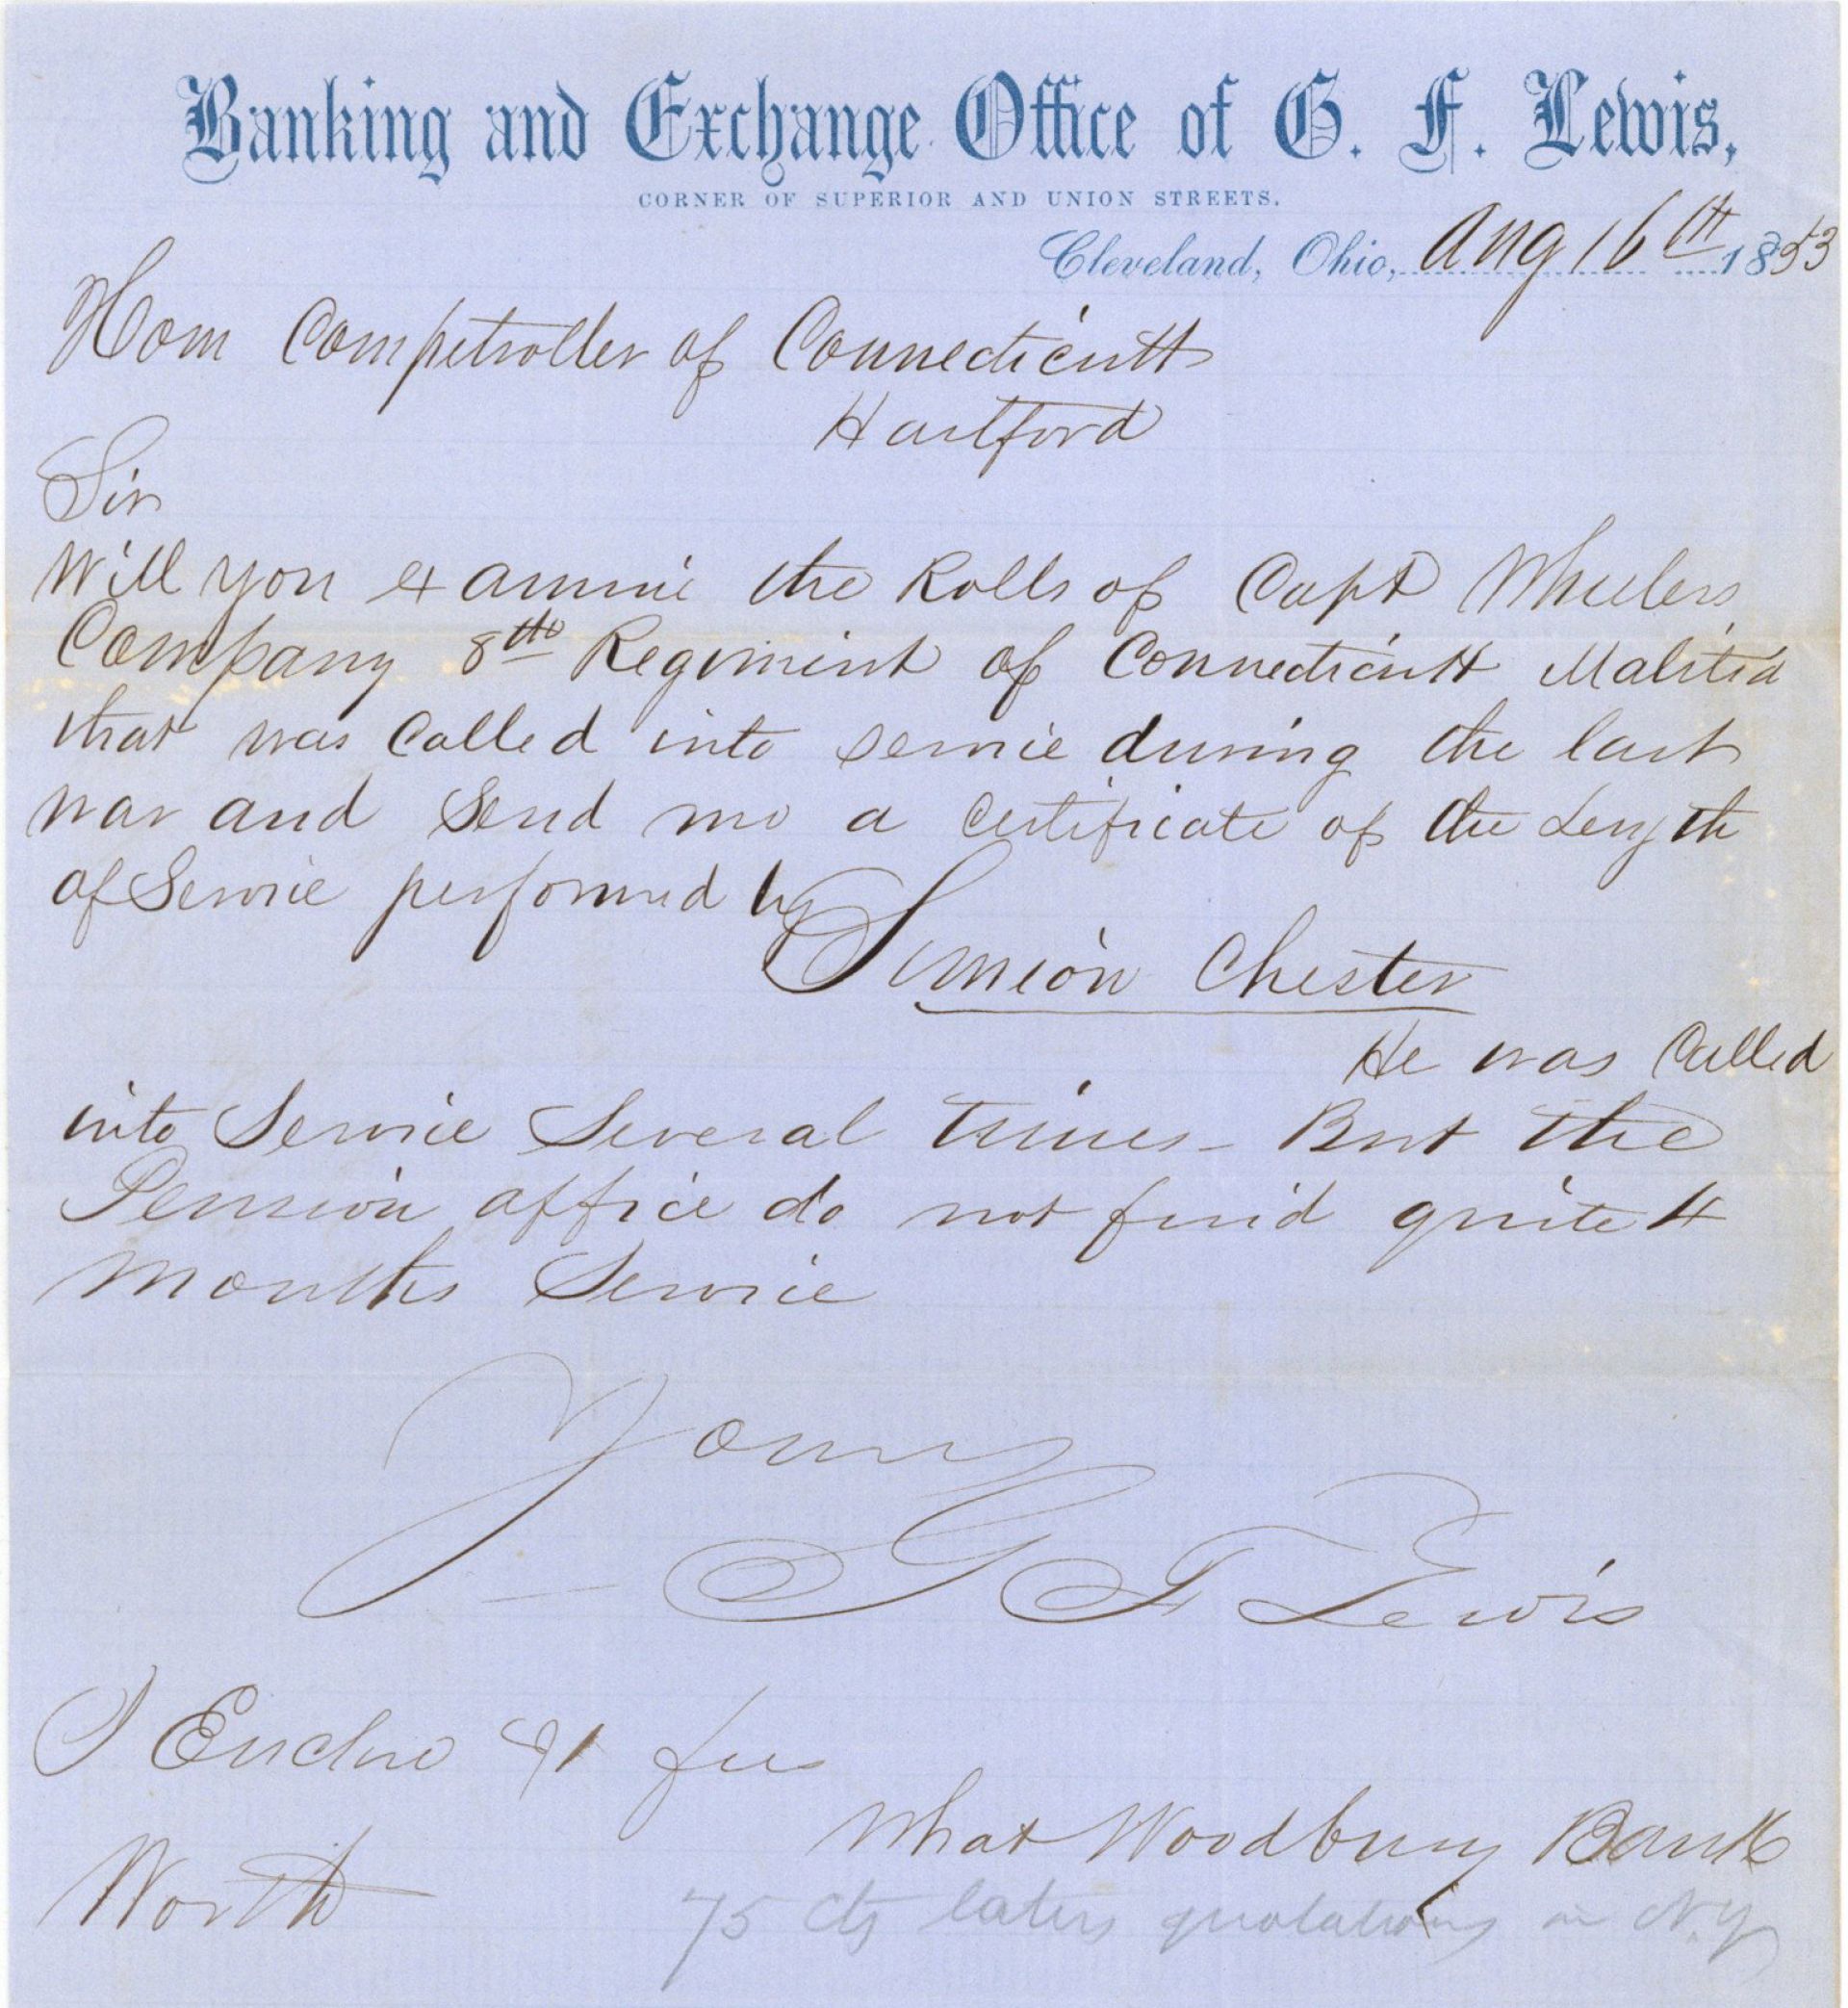 Banking and Exchange Office of G. F. Lewis,
CORNER OF SUPERIOR AND UNION STREETS.
Cleveland, Ohio, Aug 16th 1853
Hom Comptroller of Connecticutt
Hartford
Sir
Will you examine the Rolls of Capt Wheelers
Company 8th Regiment of Connecticutt Malitia
that was Called into service during the last
war and Send me a Certificate of the Length
of Service performed by
Simeon Chester
He was Called
into Service Several times - But the
Pension office do not find quite 4
Months Service
Yours
G F Lewis
I Enclose $1 fees
What Woodbury Bank
Worth
75 cts latest quotations in N.Y